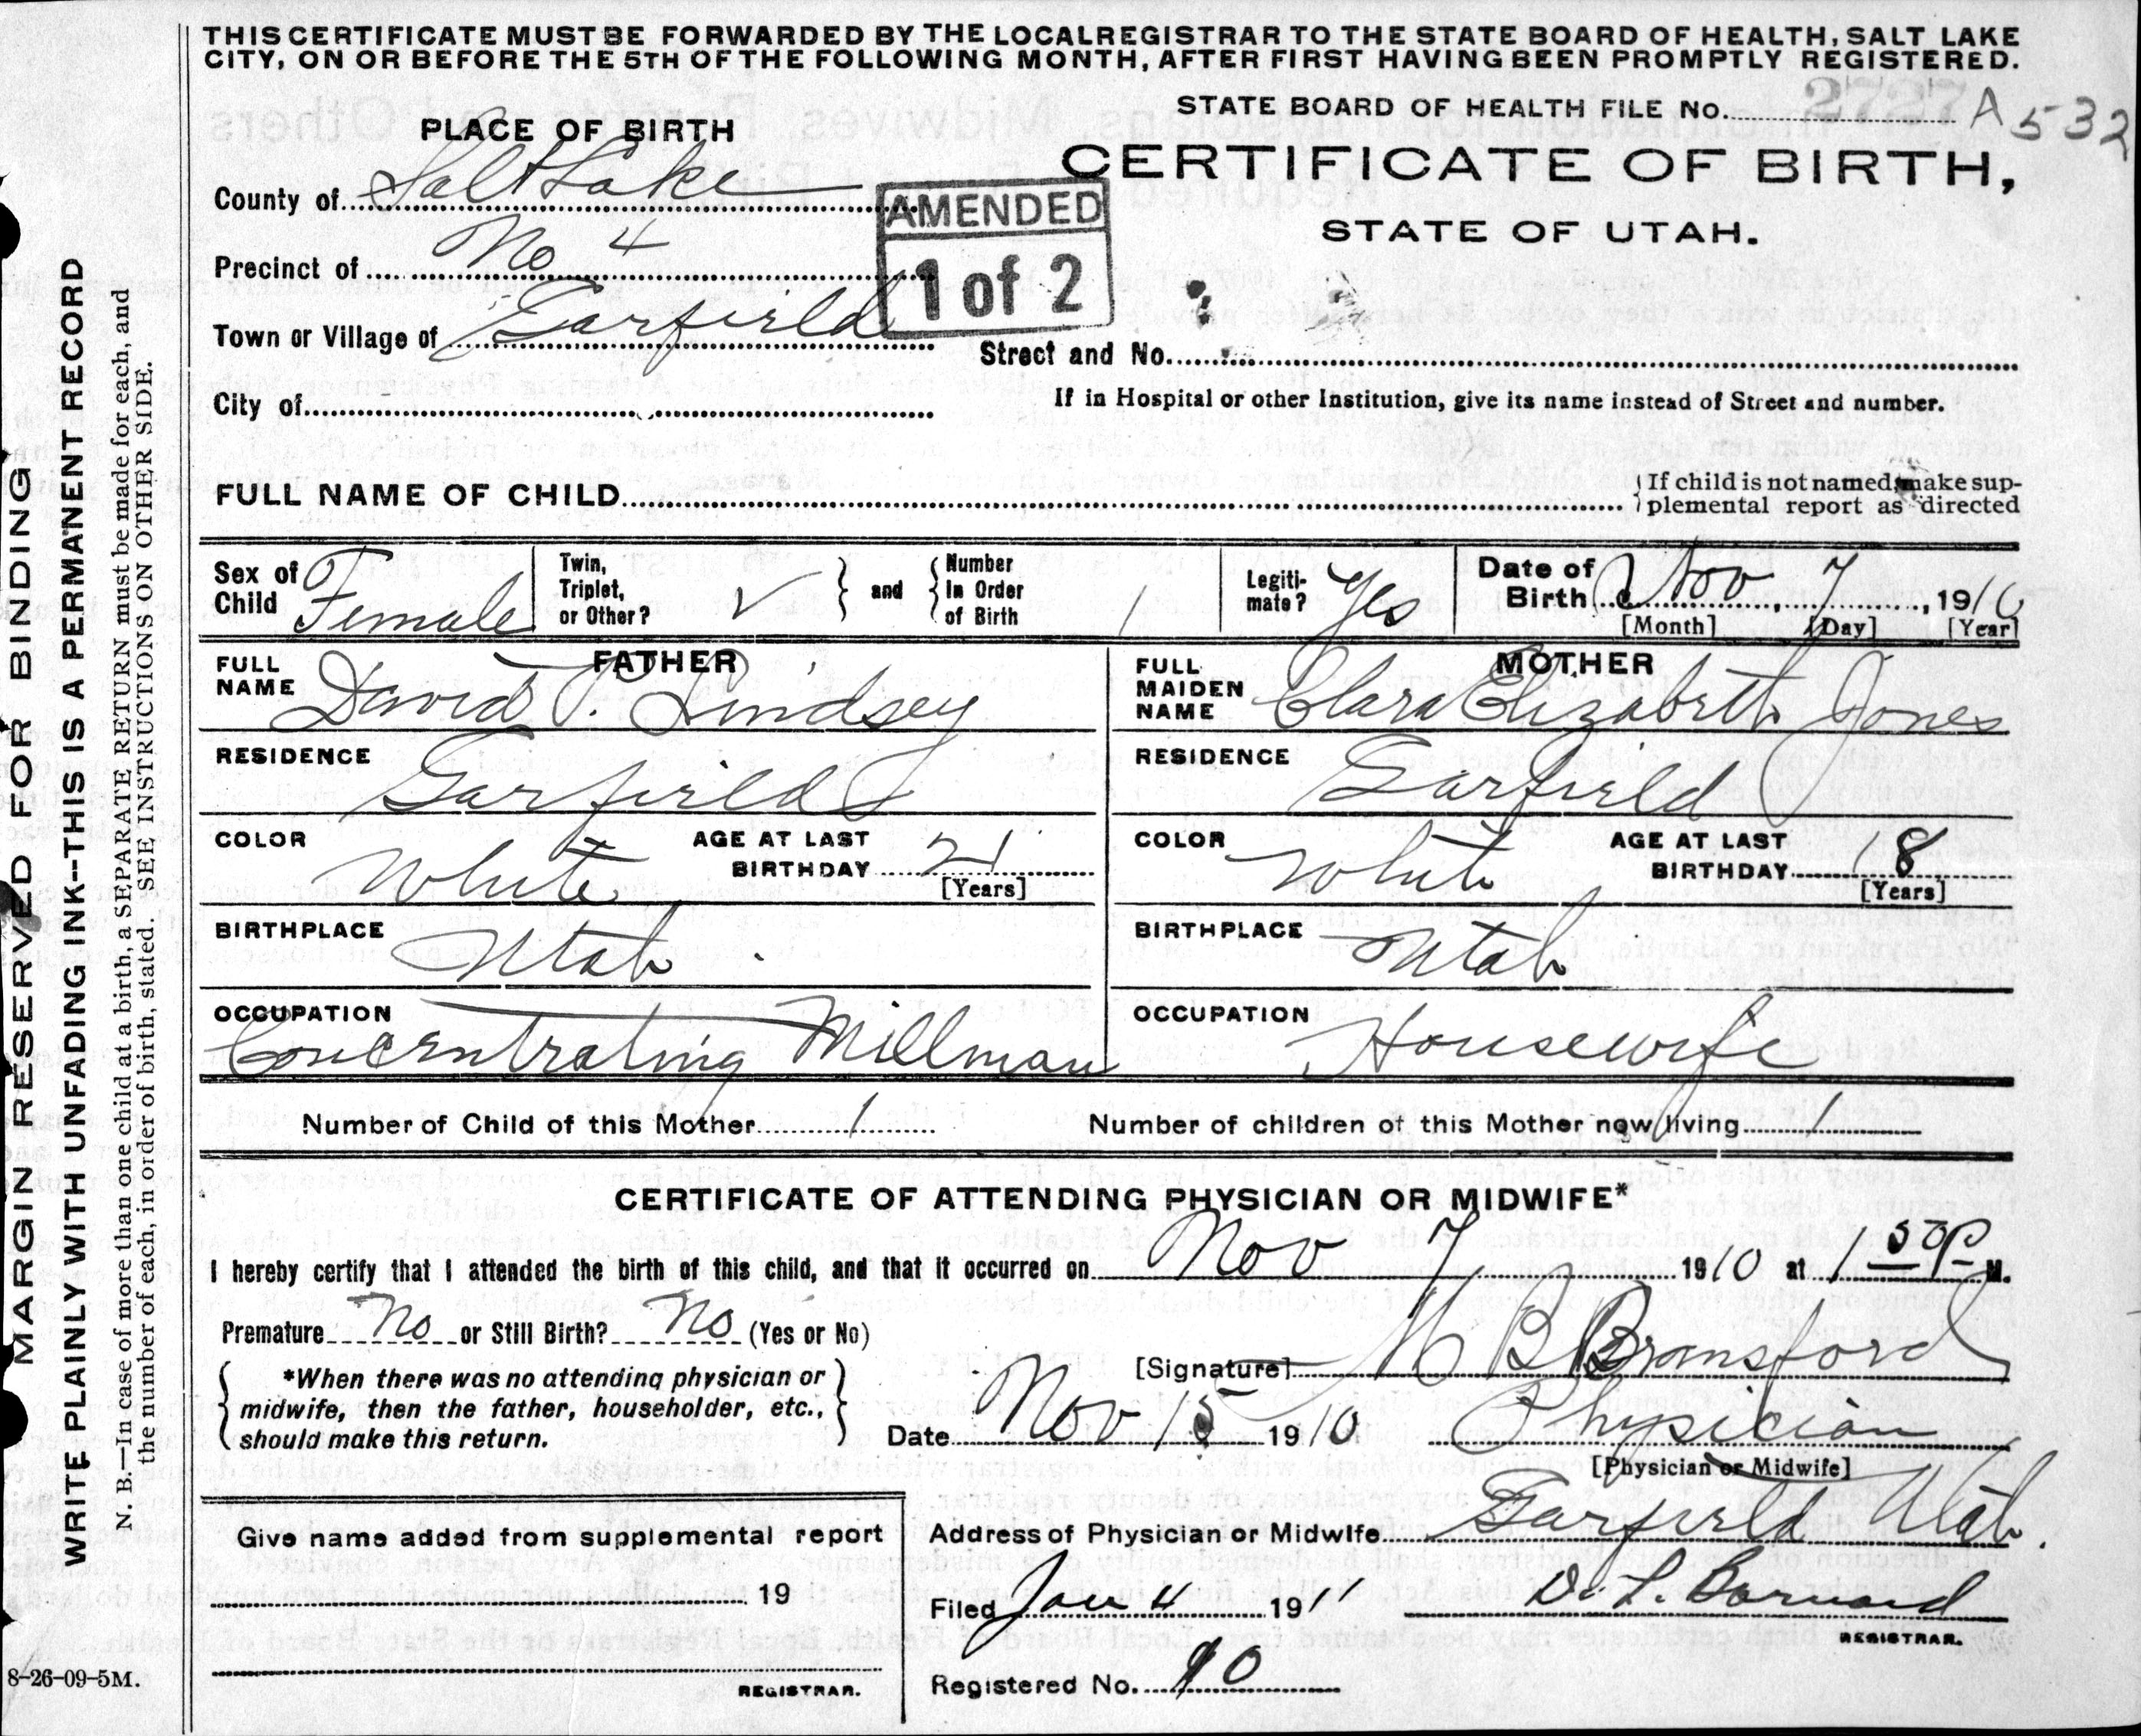 THIS CERTIFICATE MUST BE FORWARDED BY THE LOCAL REGISTRAR TO THE STATE BOARD OF HEALTH, SALT LAKE
CITY, ON OR BEFORE THE 5TH OF THE FOLLOWING MONTH, AFTER FIRST HAVING BEEN PROMPTLY REGISTERED.
STATE BOARD OF HEALTH FILE No. 2727 A 532
PLACE OF BIRTH
CERTIFICATE OF BIRTH,
STATE OF UTAH.
County of Salt Lake
AMENDED
1 of 2
Precinct of No 4
Town or Village of Garfield
Street and No.
City of
If in Hospital or other Institution, give its name instead of Street and number.
FULL NAME OF CHILD
If child is not named make sup-
plemental report as directed
Sex of Child Female
Twin, Triplet, or Other? √ and Number In Order of Birth 1
Legiti-mate? Yes
Date of Birth Nov 7, 1910
[Month] [Day] [Year]
FATHER
FULL NAME David P. Lindsey
RESIDENCE Garfield
COLOR White AGE AT LAST BIRTHDAY 21
[Years]
BIRTHPLACE Utah
OCCUPATION Concentrating Millman
MOTHER
FULL MAIDEN NAME Clara Elizabeth Jones
RESIDENCE Garfield
COLOR White AGE AT LAST BIRTHDAY 18
[Years]
BIRTHPLACE Utah
OCCUPATION Housewife
Number of Child of this Mother 1 Number of children of this Mother now living 1
CERTIFICATE OF ATTENDING PHYSICIAN OR MIDWIFE*
I hereby certify that I attended the birth of this child, and that it occurred on Nov 7 1910 at 1 50 P M.
Premature No or Still Birth? No (Yes or No)
*When there was no attending physician or
midwife, then the father, householder, etc.,
should make this return.
[Signature] M B Bransford
Date Nov 15 1910 Physician
[Physician or Midwife]
Address of Physician or Midwife Garfield Utah.
Filed Jan 4 1911 D. L. Barnard
REGISTRAR.
Registered No. 90
Give name added from supplemental report
19
REGISTRAR.
8-26-09-5M.
MARGIN RESERVED FOR BINDING
WRITE PLAINLY WITH UNFADING INK--THIS IS A PERMANENT RECORD
N. B.—In case of more than one child at a birth, a SEPARATE RETURN must be made for each, and
the number of each, in order of birth, stated. SEE INSTRUCTIONS ON OTHER SIDE.